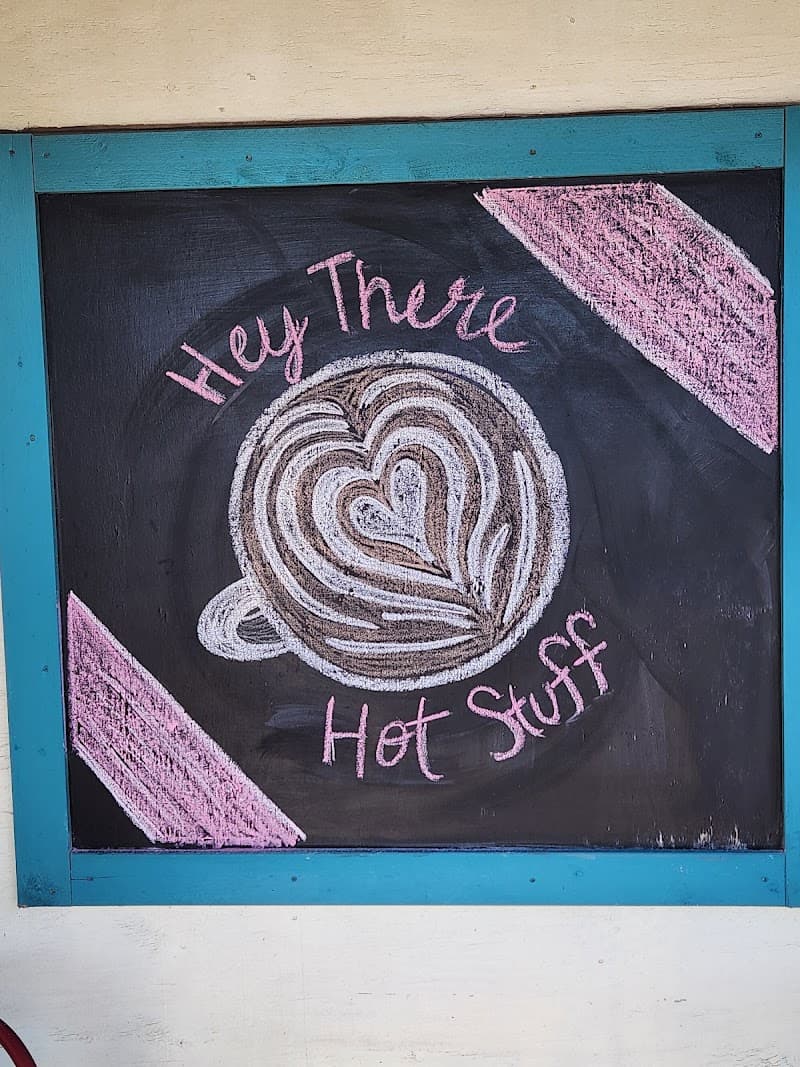 Hey There
Hot Stuff